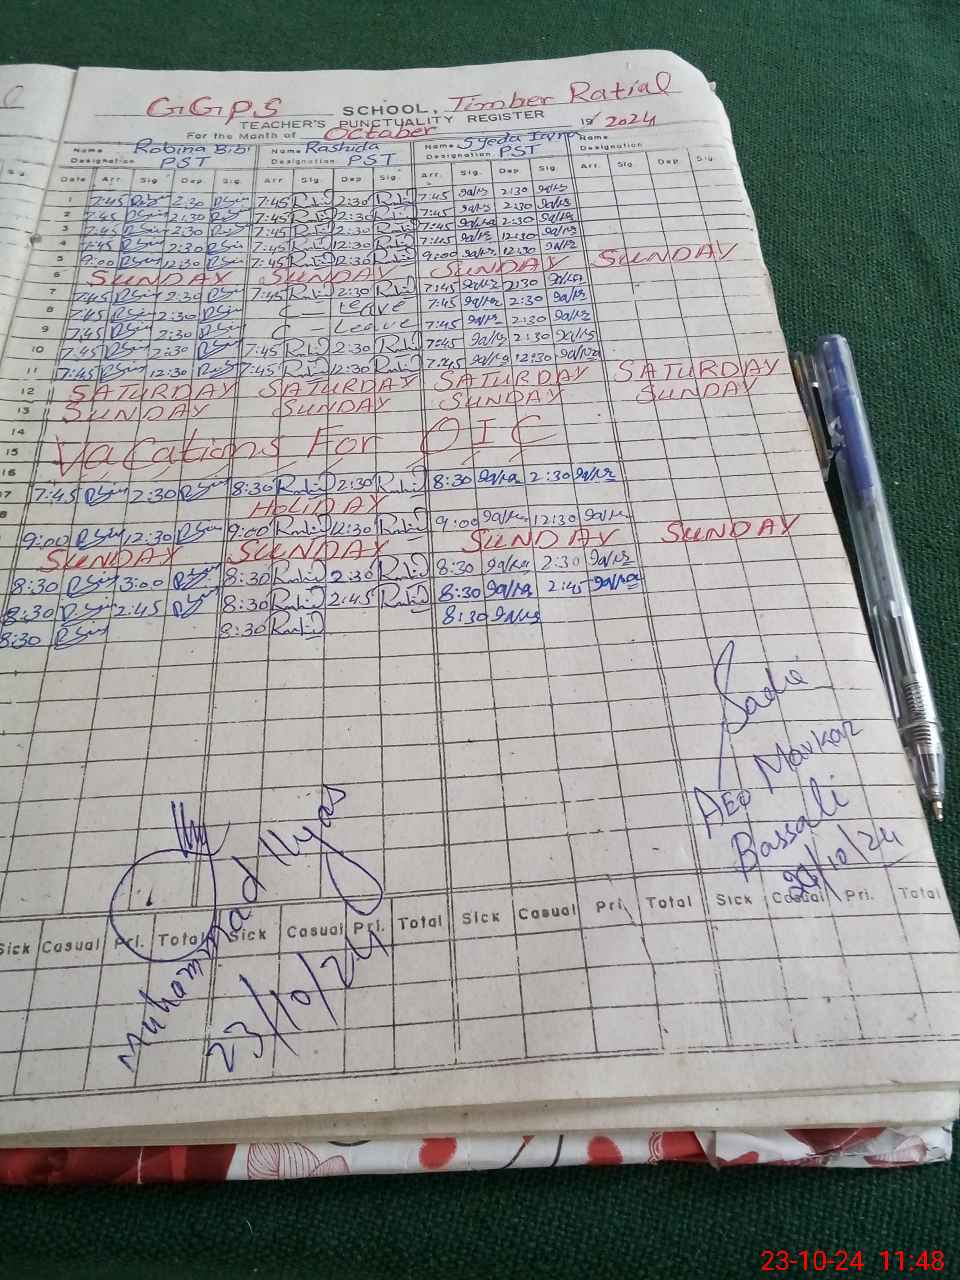 GGPS SCHOOL, Timber Ratial
TEACHER'S PUNCTUALITY REGISTER
For the Month of October 19 2024
Name Robina Bibi Name Rashida Name Syeda Name
Designation PST Designation PST Designation PST Designation
Date Arr. Sig. Dep. Sig. Arr. Sig. Dep. Sig. Arr. Sig. Dep. Sig. Arr. Sig. Dep. Sig.
1 7:45 2:30 7:45 2:30 7:45 2:30
2 7:45 2:30 7:45 2:30 7:45 2:30
3 7:45 2:30 7:45 2:30 7:45 2:30
4 7:45 2:30 7:45 12:30 7:45 12:30
5 9:00 12:30 7:45 12:30 9:00 12:30
6 SUNDAY SUNDAY SUNDAY SUNDAY
7 7:45 2:30 7:45 2:30 7:45 2:30
8 7:45 2:30 C Leave 7:45 2:30
9 7:45 2:30 C Leave 7:45 2:30
10 7:45 2:30 7:45 2:30 7:45 2:30
11 7:45 12:30 7:45 12:30 7:45 12:30
12 SATURDAY SATURDAY SATURDAY SATURDAY
13 SUNDAY SUNDAY SUNDAY SUNDAY
14
15 Vacations For OIC
16
17 7:45 2:30 8:30 2:30 8:30 2:30
8 HOLIDAY
9:00 12:30 9:00 12:30 9:00 12:30
SUNDAY SUNDAY SUNDAY SUNDAY
8:30 3:00 8:30 2:30 8:30 2:30
8:30 2:45 8:30 2:45 8:30 2:45
8:30 8:30 8:30
Sadia
AEO Markaz
Bassali
/10/24
Sick Casual Pri. Total Sick Casual Pri. Total Sick Casual Pri. Total Sick Casual Pri. Total
Muhammad Ilyas
23/10/24
23-10-24 11:48